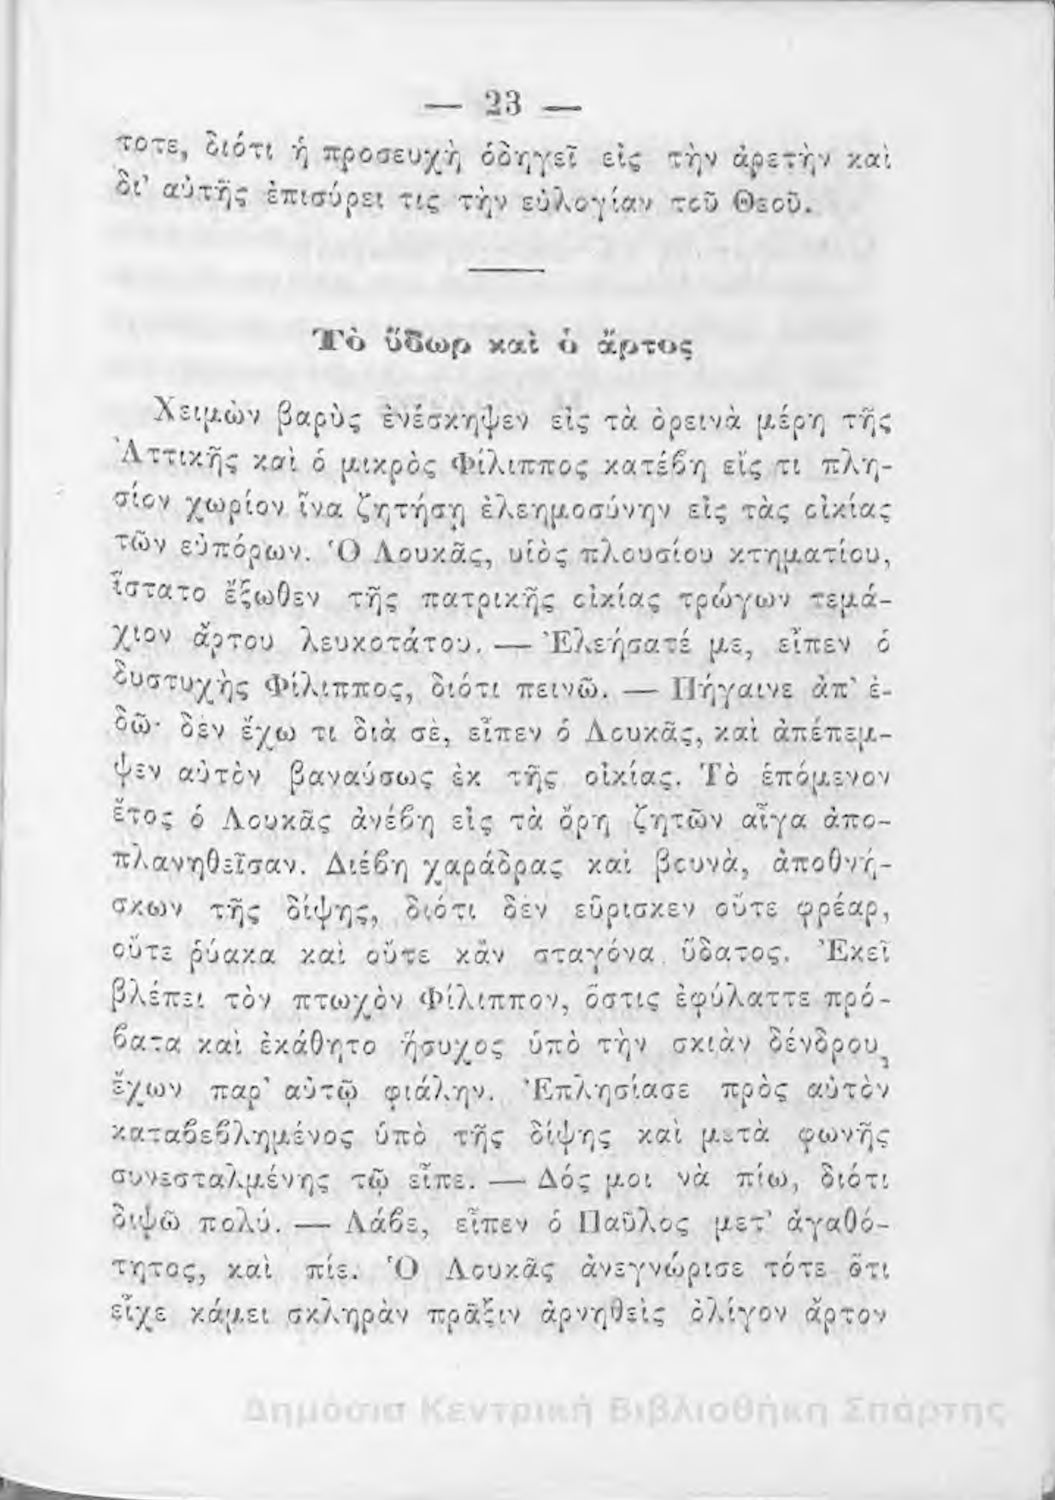 — 23 —
τοτε, διότι ἡ προσευχὴ ὁδηγεῖ εἰς τὴν ἀρετὴν καὶ
δι' αὐτῆς ἐπισύρει τις τὴν εὐλογίαν τοῦ Θεοῦ.
Τὸ ὕδωρ καὶ ὁ ἄρτος
Χειμὼν βαρὺς ἐνέσκηψεν εἰς τὰ ὀρεινὰ μέρη τῆς
Ἀττικῆς καὶ ὁ μικρὸς Φίλιππος κατέβη εἴς τι πλη-
σίον χωρίον ἵνα ζητήσῃ ἐλεημοσύνην εἰς τὰς οἰκίας
τῶν εὐπόρων. Ὁ Λουκᾶς, υἱὸς πλουσίου κτηματίου,
ἵστατο ἔξωθεν τῆς πατρικῆς οἰκίας τρώγων τεμά-
χιον ἄρτου λευκοτάτου. — Ἐλεήσατέ με, εἶπεν ὁ
δυστυχὴς Φίλιππος, διότι πεινῶ. — Πήγαινε ἀπ' ἐ-
δῶ· δὲν ἔχω τι διὰ σὲ, εἶπεν ὁ Λουκᾶς, καὶ ἀπέπεμ-
ψεν αὐτὸν βαναύσως ἐκ τῆς οἰκίας. Τὸ ἑπόμενον
ἔτος ὁ Λουκᾶς ἀνέβη εἰς τὰ ὄρη ζητῶν αἶγα ἀπο-
πλανηθεῖσαν. Διέβη χαράδρας καὶ βουνὰ, ἀποθνή-
σκων τῆς δίψης, διότι δὲν εὕρισκεν οὔτε φρέαρ,
οὔτε ῥύακα καὶ οὔτε κἂν σταγόνα ὕδατος. Ἐκεῖ
βλέπει τὸν πτωχὸν Φίλιππον, ὅστις ἐφύλαττε πρό-
βατα καὶ ἐκάθητο ἥσυχος ὑπὸ τὴν σκιὰν δένδρου,
ἔχων παρ' αὐτῷ φιάλην. Ἐπλησίασε πρὸς αὐτὸν
καταβεβλημένος ὑπὸ τῆς δίψης καὶ μετὰ φωνῆς
συνεσταλμένης τῷ εἶπε. — Δός μοι νὰ πίω, διότι
διψῶ πολύ. — Λάβε, εἶπεν ὁ Παῦλος μετ' ἀγαθό-
τητος, καὶ πίε. Ὁ Λουκᾶς ἀνεγνώρισε τότε ὅτι
εἶχε κάμει σκληρὰν πρᾶξιν ἀρνηθεὶς ὀλίγον ἄρτον
Δημόσια Κεντρική Βιβλιοθήκη Σπάρτης